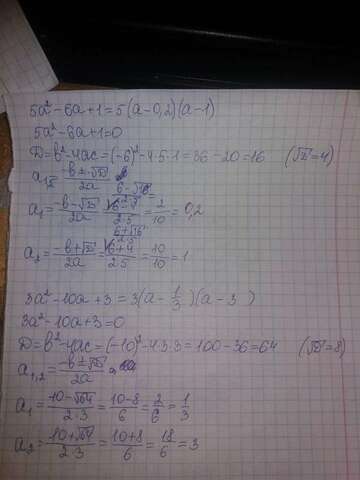 5a² - 6a + 1 = 5(a - 0,2)(a - 1)
5a² - 6a + 1 = 0
D = b² - 4ac = (-6)² - 4·5·1 = 36 - 20 = 16 (√D = 4)
a₁,₂ = (-b ± √D)/2a
a₁ = (-b - √D)/2a = (6 - √16)/(2·5) = 2/10 = 0,2
a₂ = (-b + √D)/2a = (6 + √16)/(2·5) = (6 + 4)/(2·5) = 10/10 = 1
3a² - 10a + 3 = 3(a - 1/3)(a - 3)
3a² - 10a + 3 = 0
D = b² - 4ac = (-10)² - 4·3·3 = 100 - 36 = 64 (√D = 8)
a₁,₂ = (-b ± √D)/2a
a₁ = (10 - √64)/(2·3) = (10 - 8)/6 = 2/6 = 1/3
a₂ = (10 + √64)/(2·3) = (10 + 8)/6 = 18/6 = 3